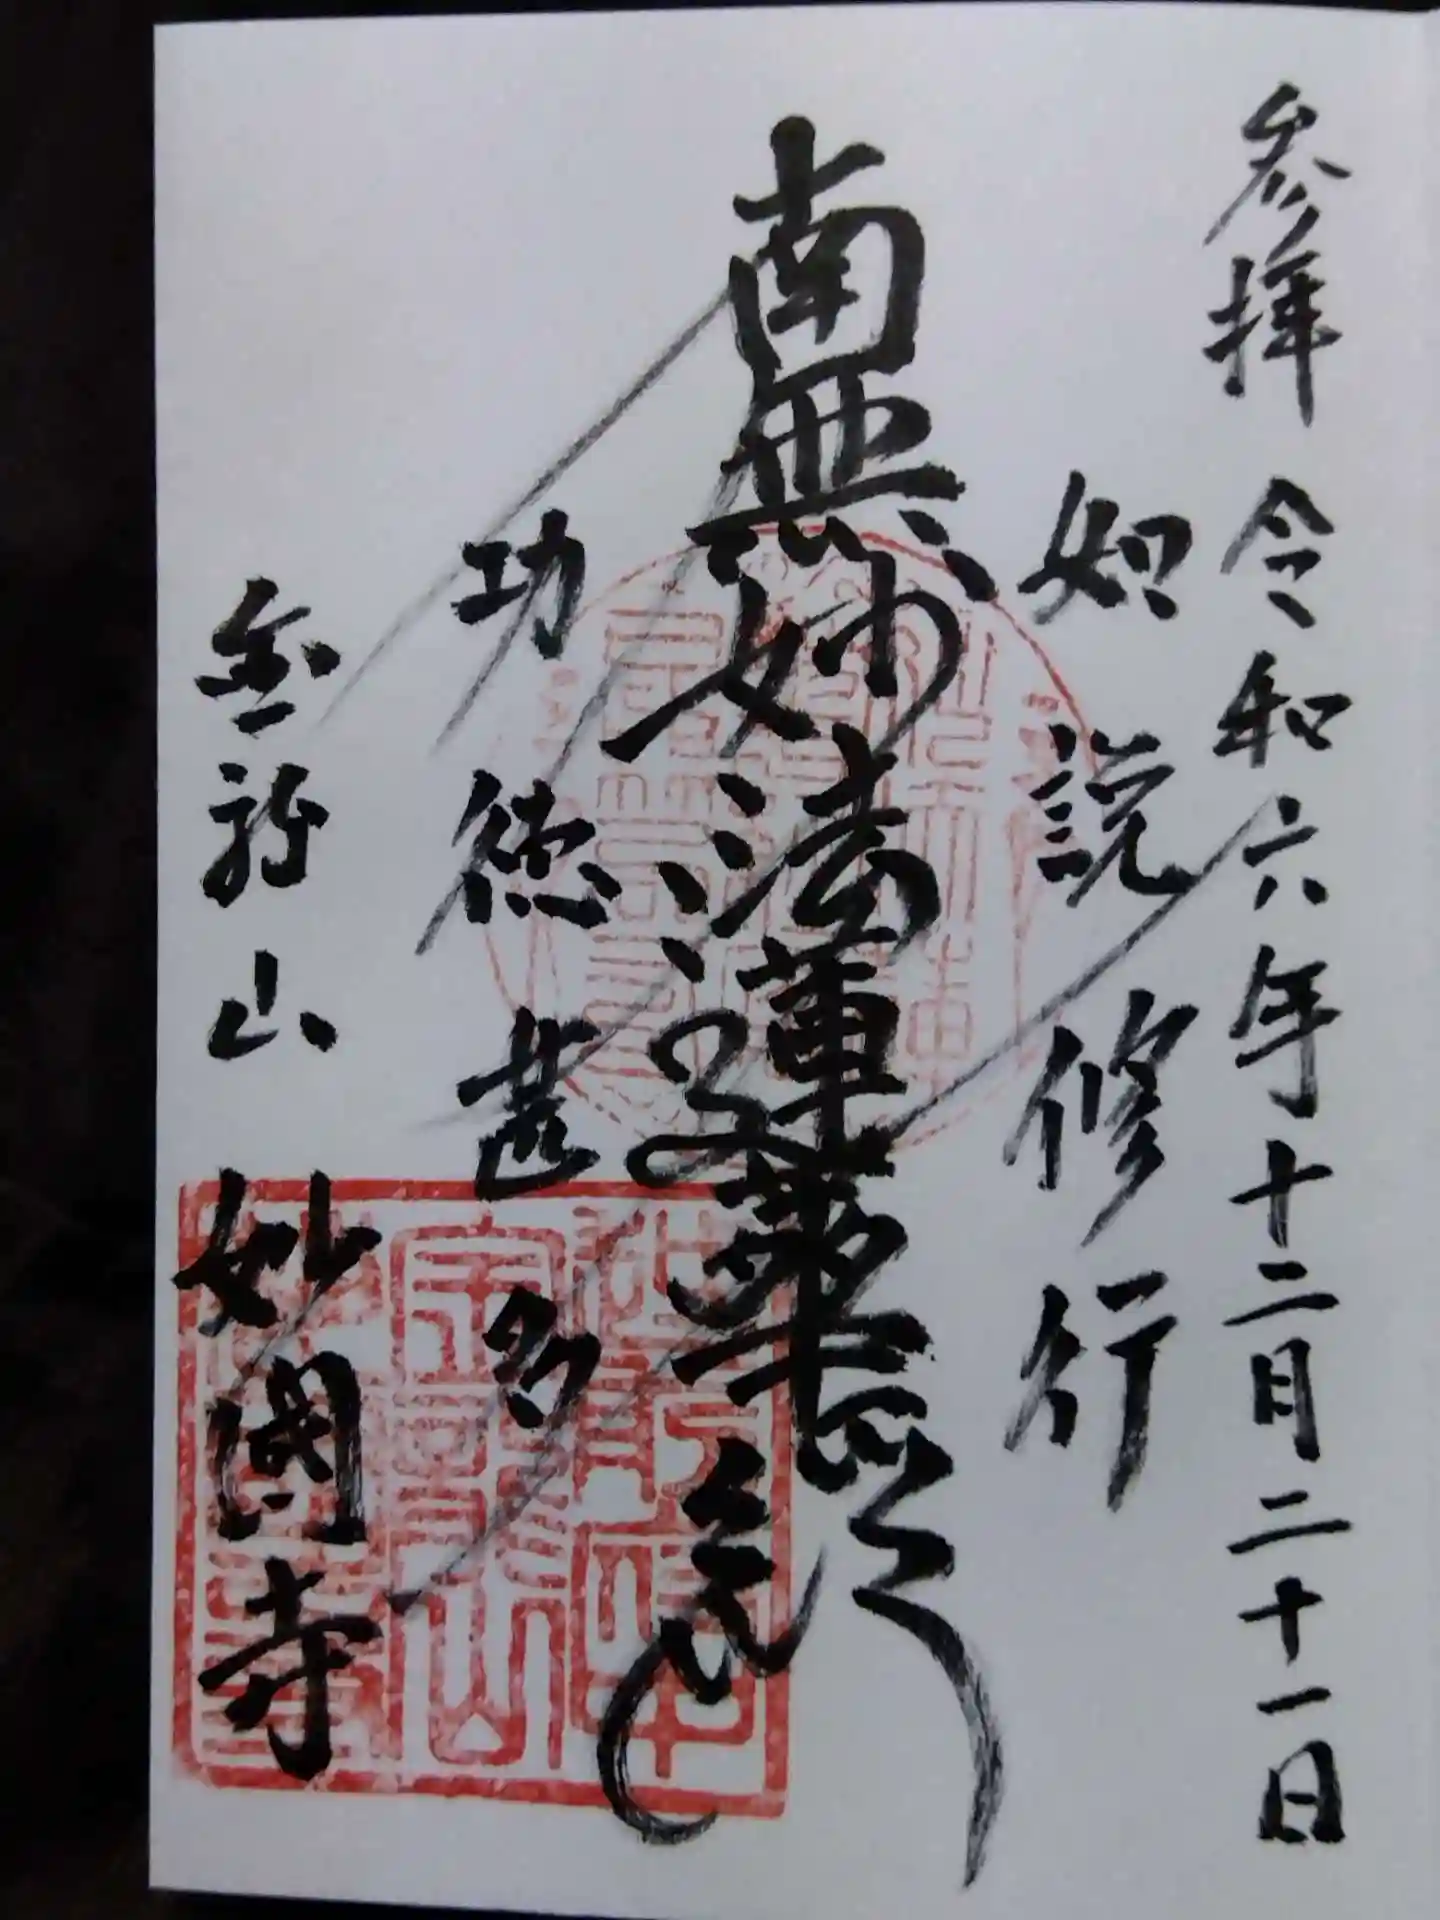 参拝 令和六年十二月二十一日
如説修行
南無妙法蓮華経
功徳甚多
金龍山 妙國寺